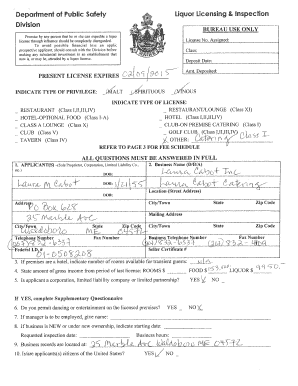 Department of Public Safety
Division
Liquor Licensing & Inspection
BUREAU USE ONLY
License No. Assigned:
Class:
Deposit Date:
Amt. Deposited:
Promise by any person that he or she can expedite a liquor
license through influence should be completely disregarded.
To avoid possible financial loss an applicant, or
prospective applicant, should consult with the Division before
making any substantial investment in an establishment that
now is, or may be, attended by a liquor license.
PRESENT LICENSE EXPIRES 02/09/2015
INDICATE TYPE OF PRIVILEGE: MALT SPIRITUOUS VINOUS
INDICATE TYPE OF LICENSE
RESTAURANT (Class I,II,III,IV)
RESTAURANT/LOUNGE (Class XI)
HOTEL-OPTIONAL FOOD (Class I-A)
HOTEL (Class I,II,III,IV)
CLASS A LOUNGE (Class X)
CLUB-ON PREMISE CATERING (Class I)
CLUB (Class V)
GOLF CLUB (Class I,II,III,IV)
TAVERN (Class IV)
OTHER: Catering Class I
REFER TO PAGE 3 FOR FEE SCHEDULE
ALL QUESTIONS MUST BE ANSWERED IN FULL
1. APPLICANT(S) –(Sole Proprietor, Corporation, Limited Liability Co., etc.)
2. Business Name (D/B/A)
DOB:
Laura Cabot Inc
Laura M Cabot
DOB: 1/21/55
Laura Cabot Catering
DOB:
Location (Street Address)
Address
PO Box 628
City/Town State Zip Code
25 Marble Ave
Mailing Address
City/Town State Zip Code
Waldoboro ME 04572
City/Town State Zip Code
Telephone Number Fax Number
Business Telephone Number Fax Number
Federal I.D. #
01-0508208
Seller Certificate #
3. If premises are a hotel, indicate number of rooms available for transient guests:
4. State amount of gross income from period of last license: ROOMS $ FOOD $ LIQUOR $
5. Is applicant a corporation, limited liability company or limited partnership? YES NO
If YES, complete Supplementary Questionnaire
6. Do you permit dancing or entertainment on the licensed premises? YES NO
7. If manager is to be employed, give name:
8. If business is NEW or under new ownership, indicate starting date:
Requested inspection date: Business hours:
9. Business records are located at: 25 Marble Ave Waldoboro ME 04572
10. Is/are applicants(s) citizens of the United States? YES NO